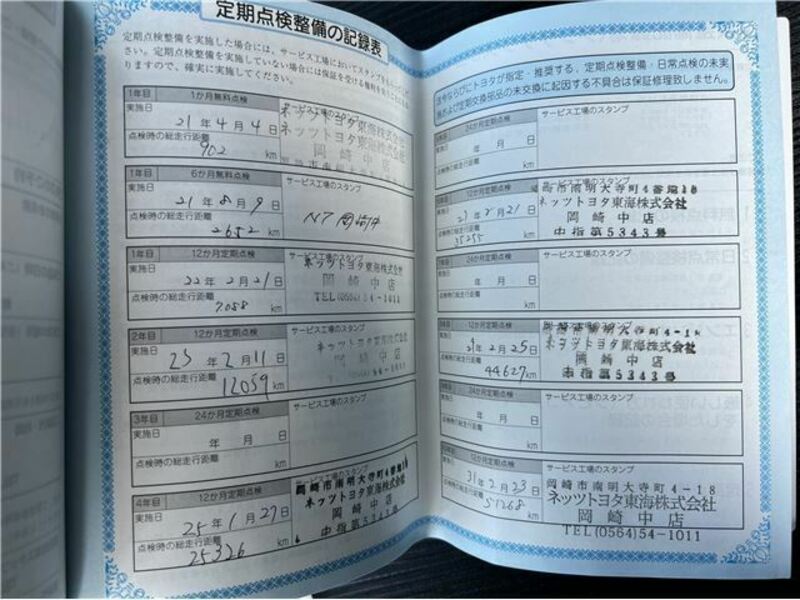 定期点検整備の記録表
定期点検整備を実施した場合には、サービス工場においてスタンプを
さい。定期点検整備を実施していない場合には保証を受ける権利を
りますので、確実に実施してください。
1年目 1か月無料点検 サービス工場のスタンプ
実施日 21年4月4日 ネッツトヨタ東海株式会社
点検時の総走行距離 902 km 岡崎中店
1年目 6か月無料点検 サービス工場のスタンプ
実施日 21年8月9日
点検時の総走行距離 2652 km NT岡崎中
1年目 12か月定期点検 サービス工場のスタンプ
実施日 22年2月21日 ネッツトヨタ東海株式会社
岡崎中店
点検時の総走行距離 7058 km TEL(0564)54-1011
2年目 12か月定期点検 サービス工場のスタンプ
実施日 23年2月11日 ネッツトヨタ東海株式会社
岡崎中店
点検時の総走行距離 12059 km
3年目 24か月定期点検 サービス工場のスタンプ
実施日 年 月 日
点検時の総走行距離 km
4年目 12か月定期点検 サービス工場のスタンプ
岡崎市南明大寺町4番地18
実施日 25年1月27日 ネッツトヨタ東海株式会社
岡崎中店
点検時の総走行距離 25326 km 中指第5343号
法令ならびにトヨタが指定・推奨する、定期点検整備・日常点検の未実
施および定期交換部品の未交換に起因する不具合は保証修理致しません。
24か月定期点検 サービス工場のスタンプ
実施日 年 月 日
点検時の総走行距離 km
12か月定期点検
崎市南明大寺町4番地18
27年2月21日 ネッツトヨタ東海株式会社
岡崎中店
35255 km 中指第5343号
24か月定期点検 サービス工場のスタンプ
実施日 年 月 日
点検時の総走行距離 km
12か月定期点検 サービス工場のスタンプ
南明大寺町4-18
年2月25日 ネッツトヨタ東海株式会社
岡崎中店
44627 km 中指第5343号
24か月定期点検 サービス工場のスタンプ
年 月 日
点検時の総走行距離 km
12か月定期点検 サービス工場のスタンプ
岡崎市南明大寺町4-18
31年2月23日 ネッツトヨタ東海株式会社
岡崎中店
51268 km TEL(0564)54-1011